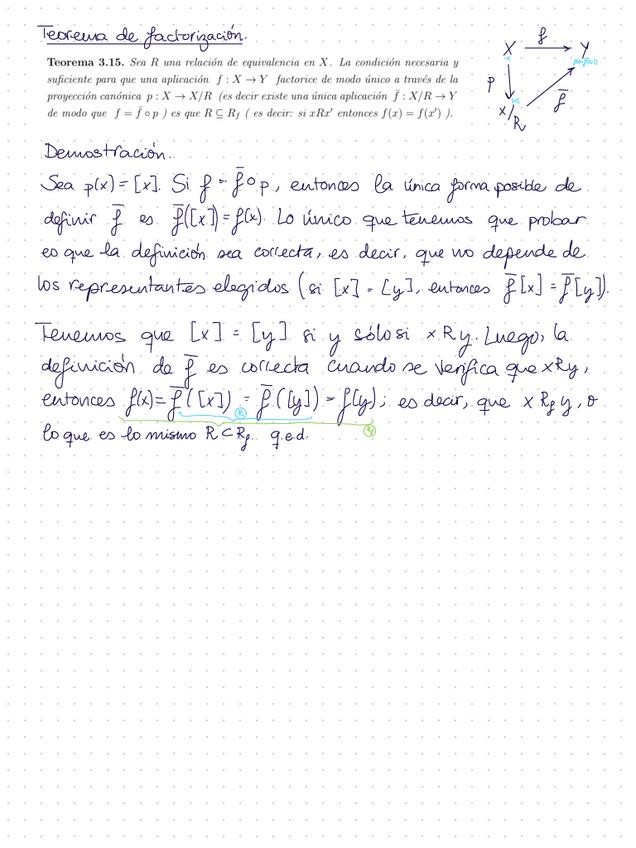 Teorema de factorización.
Teorema 3.15. Sea R una relación de equivalencia en X. La condición necesaria y
suficiente para que una aplicación f : X → Y factorice de modo único a través de la
proyección canónica p : X → X/R (es decir existe una única aplicación f̄ : X/R → Y
de modo que f = f̄ ∘ p ) es que R ⊆ R_f ( es decir: si xRx' entonces f(x) = f(x') ).
X f Y
p
X/R f̄
Demostración.
Sea p(x) = [x]. Si f = f̄ ∘ p, entonces la única forma posible de
definir f̄ es f̄([x]) = f(x). Lo único que tenemos que probar
es que la definición sea correcta, es decir, que no depende de
los representantes elegidos (si [x] = [y], entonces f̄[x] = f̄[y]).
Tenemos que [x] = [y] si y sólo si x R y. Luego, la
definición de f̄ es correcta cuando se verifica que xRy,
entonces f(x) = f̄([x]) = f̄([y]) = f(y); es decir, que x R_f y, o
R
R_f
lo que es lo mismo R ⊂ R_f. q.e.d.